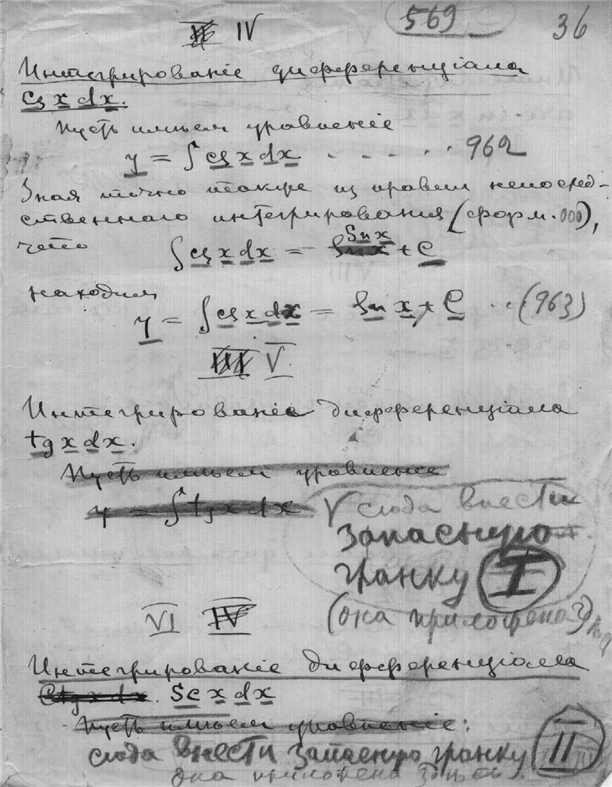 IV 569 36
Интегрированіе дифференціала
cs x dx.
Пусть имѣем уравненіе
y = ∫ cs x dx - - - . . . 962
Зная точно также из правил непосред-
ственнаго интегрирования (форм. 000),
что
∫ cs x dx = Sn x + C
находим
y = ∫ cs x dx = sn x + C .. (963)
III V
Интегрированіе дифференціала
tg x dx.
Пусть имѣем уравненіе
y = ∫ tg x dx V сюда внести
запасную
гранку I
(она приложена)
VI IV
Интегрированіе дифференціала
Ctg x dx. Sc x dx
Пусть имѣем уравненіе:
сюда внести запасную гранку II
она приложена